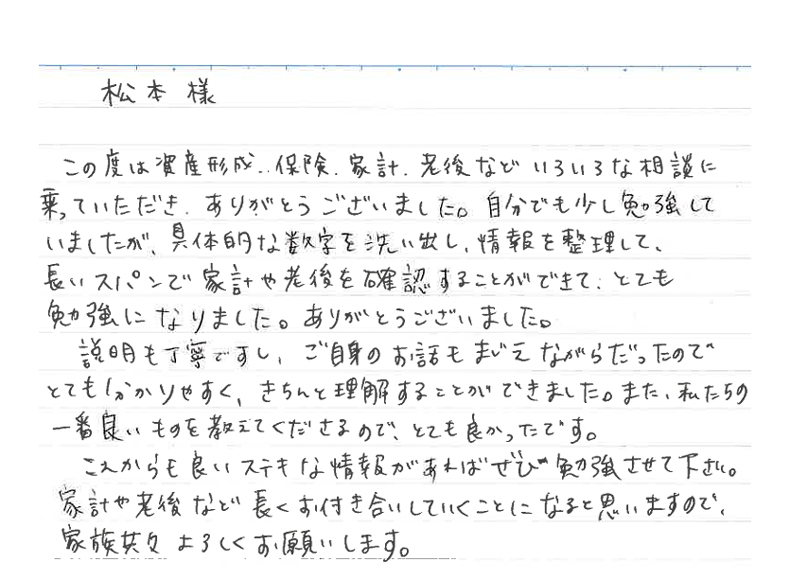 松本様
この度は資産形成、保険、家計、老後などいろいろな相談に
乗っていただき、ありがとうございました。自分でも少し勉強して
いましたが、具体的な数字を洗い出し、情報を整理して、
長いスパンで家計や老後を確認することができて、とても
勉強になりました。ありがとうございました。
説明も丁寧ですし、ご自身のお話もまじえながらだったので
とても分かりやすく、きちんと理解することができました。また、私たちの
一番良いものを教えてくださるので、とても良かったです。
これからも良いステキな情報があればぜひ勉強させて下さい。
家計や老後など長くお付き合いしていくことになると思いますので、
家族共々よろしくお願いします。